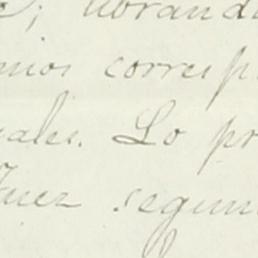 ; librando
nios corresp
uales. Lo pr
Juez segun